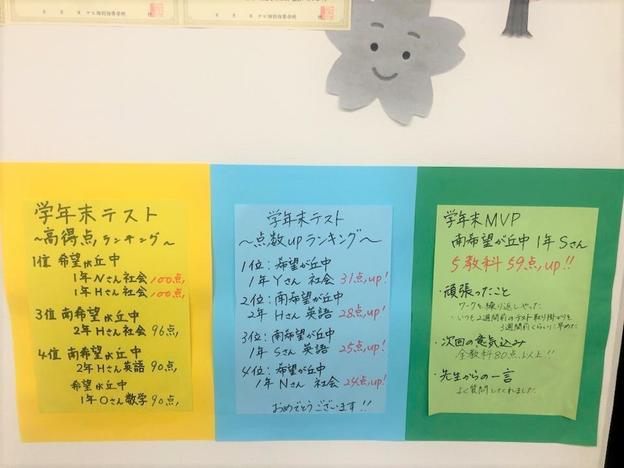 ナビ個別指導学院
ナビ個別指導学院
学年末テスト
～高得点ランキング～
1位 希望ヶ丘中
1年Nさん社会 100点
1年Hさん社会 100点
3位 南希望ヶ丘中
2年Hさん社会 96点
4位 南希望ヶ丘中
2年Hさん英語 90点
希望ヶ丘中
1年Oさん数学 90点
学年末テスト
～点数upランキング～
1位:希望が丘中
1年Yさん 社会 31点up!
2位:南希望が丘中
2年Hさん 英語 28点up!
3位:南希望が丘中
1年Sさん 英語 25点up!
4位:希望が丘中
1年Nさん 社会 24点up!
おめでとうございます!!
学年末MVP
南希望が丘中 1年Sさん
5教科 59点up!!
・頑張ったこと
ワークを繰り返しやった
・いつも2週間前のテスト取り掛かりを
3週間前くらいに早めた
・次回の意気込み
全教科80点以上!!
・先生からの一言
よく質問してくれました